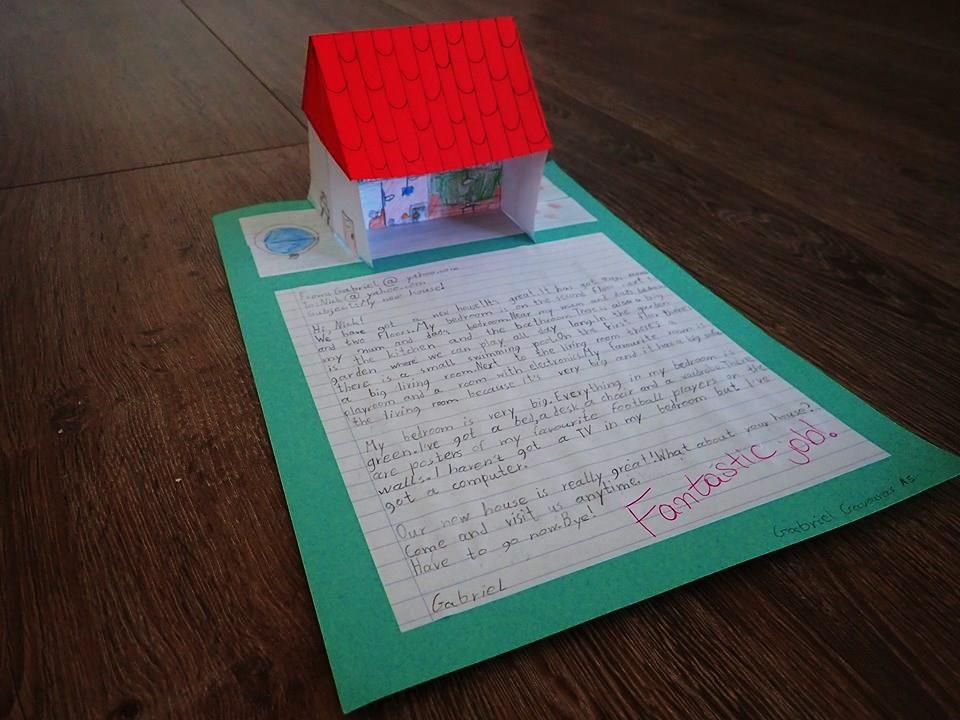 From: Gabriel @ yahoo.com
To: Nick @ yahoo.com
Subject: My new house!
Hi, Nick!
We have got a new house! It's great. It has got
and two floors. My bedroom is on the second floor
my mum and dad's bedroom. Near my room and dad's bedroom
is the kitchen and the bathroom. There is also a big
garden where we can play all day long. In the garden
there is a small swimming pool. On the first floor there's
a big living room. Next to the living room there's a
playroom and a room with electronics. My favourite room is
the living room because it's very big and it has a big sofa
My bedroom is very big. Everything in my bedroom is
green. I've got a bed, a desk, a chair and a wardrobe. There
are posters of my favourite football players on the
walls. I haven't got a TV in my bedroom but I've
got a computer.
Our new house is really great! What about your house?
Come and visit us anytime.
Have to go now. Bye!
Gabriel
Fantastic job!
Gabriel